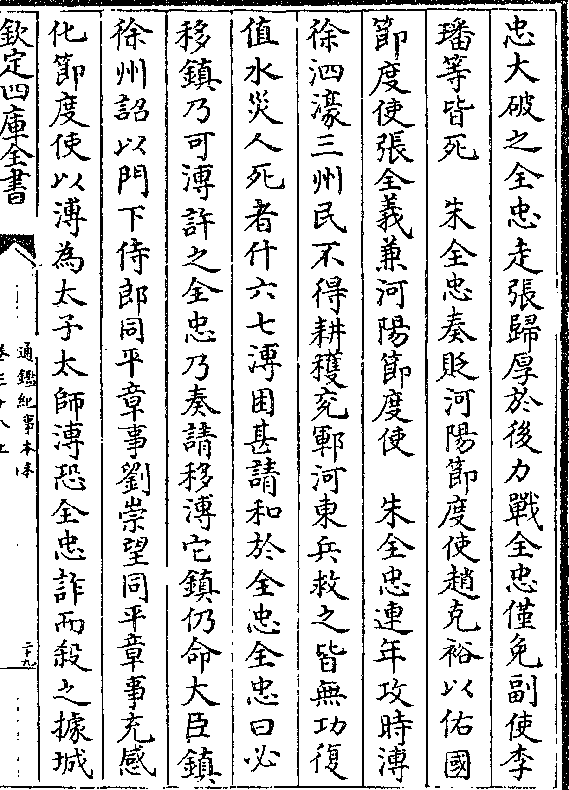 忠大破之全忠走張歸厚於後力戰全忠僅免副使李
璠等皆死　朱全忠奏貶河陽節度使趙克裕以佑國
節度使張全義兼河陽節度使　朱全忠連年攻時溥
徐泗濠三州民不得耕穫兖鄆河東兵救之皆無功復
值水災人死者什六七溥困甚請和於全忠全忠曰必
移鎮乃可溥許之全忠乃奏請移溥它鎮仍命大臣鎮
徐州詔以門下侍郎同平章事劉崇望同平章事充感
化節度使以溥為太子太師溥恐全忠詐而殺之據城
欽定四庫全書
通鑑紀事本末
二十九